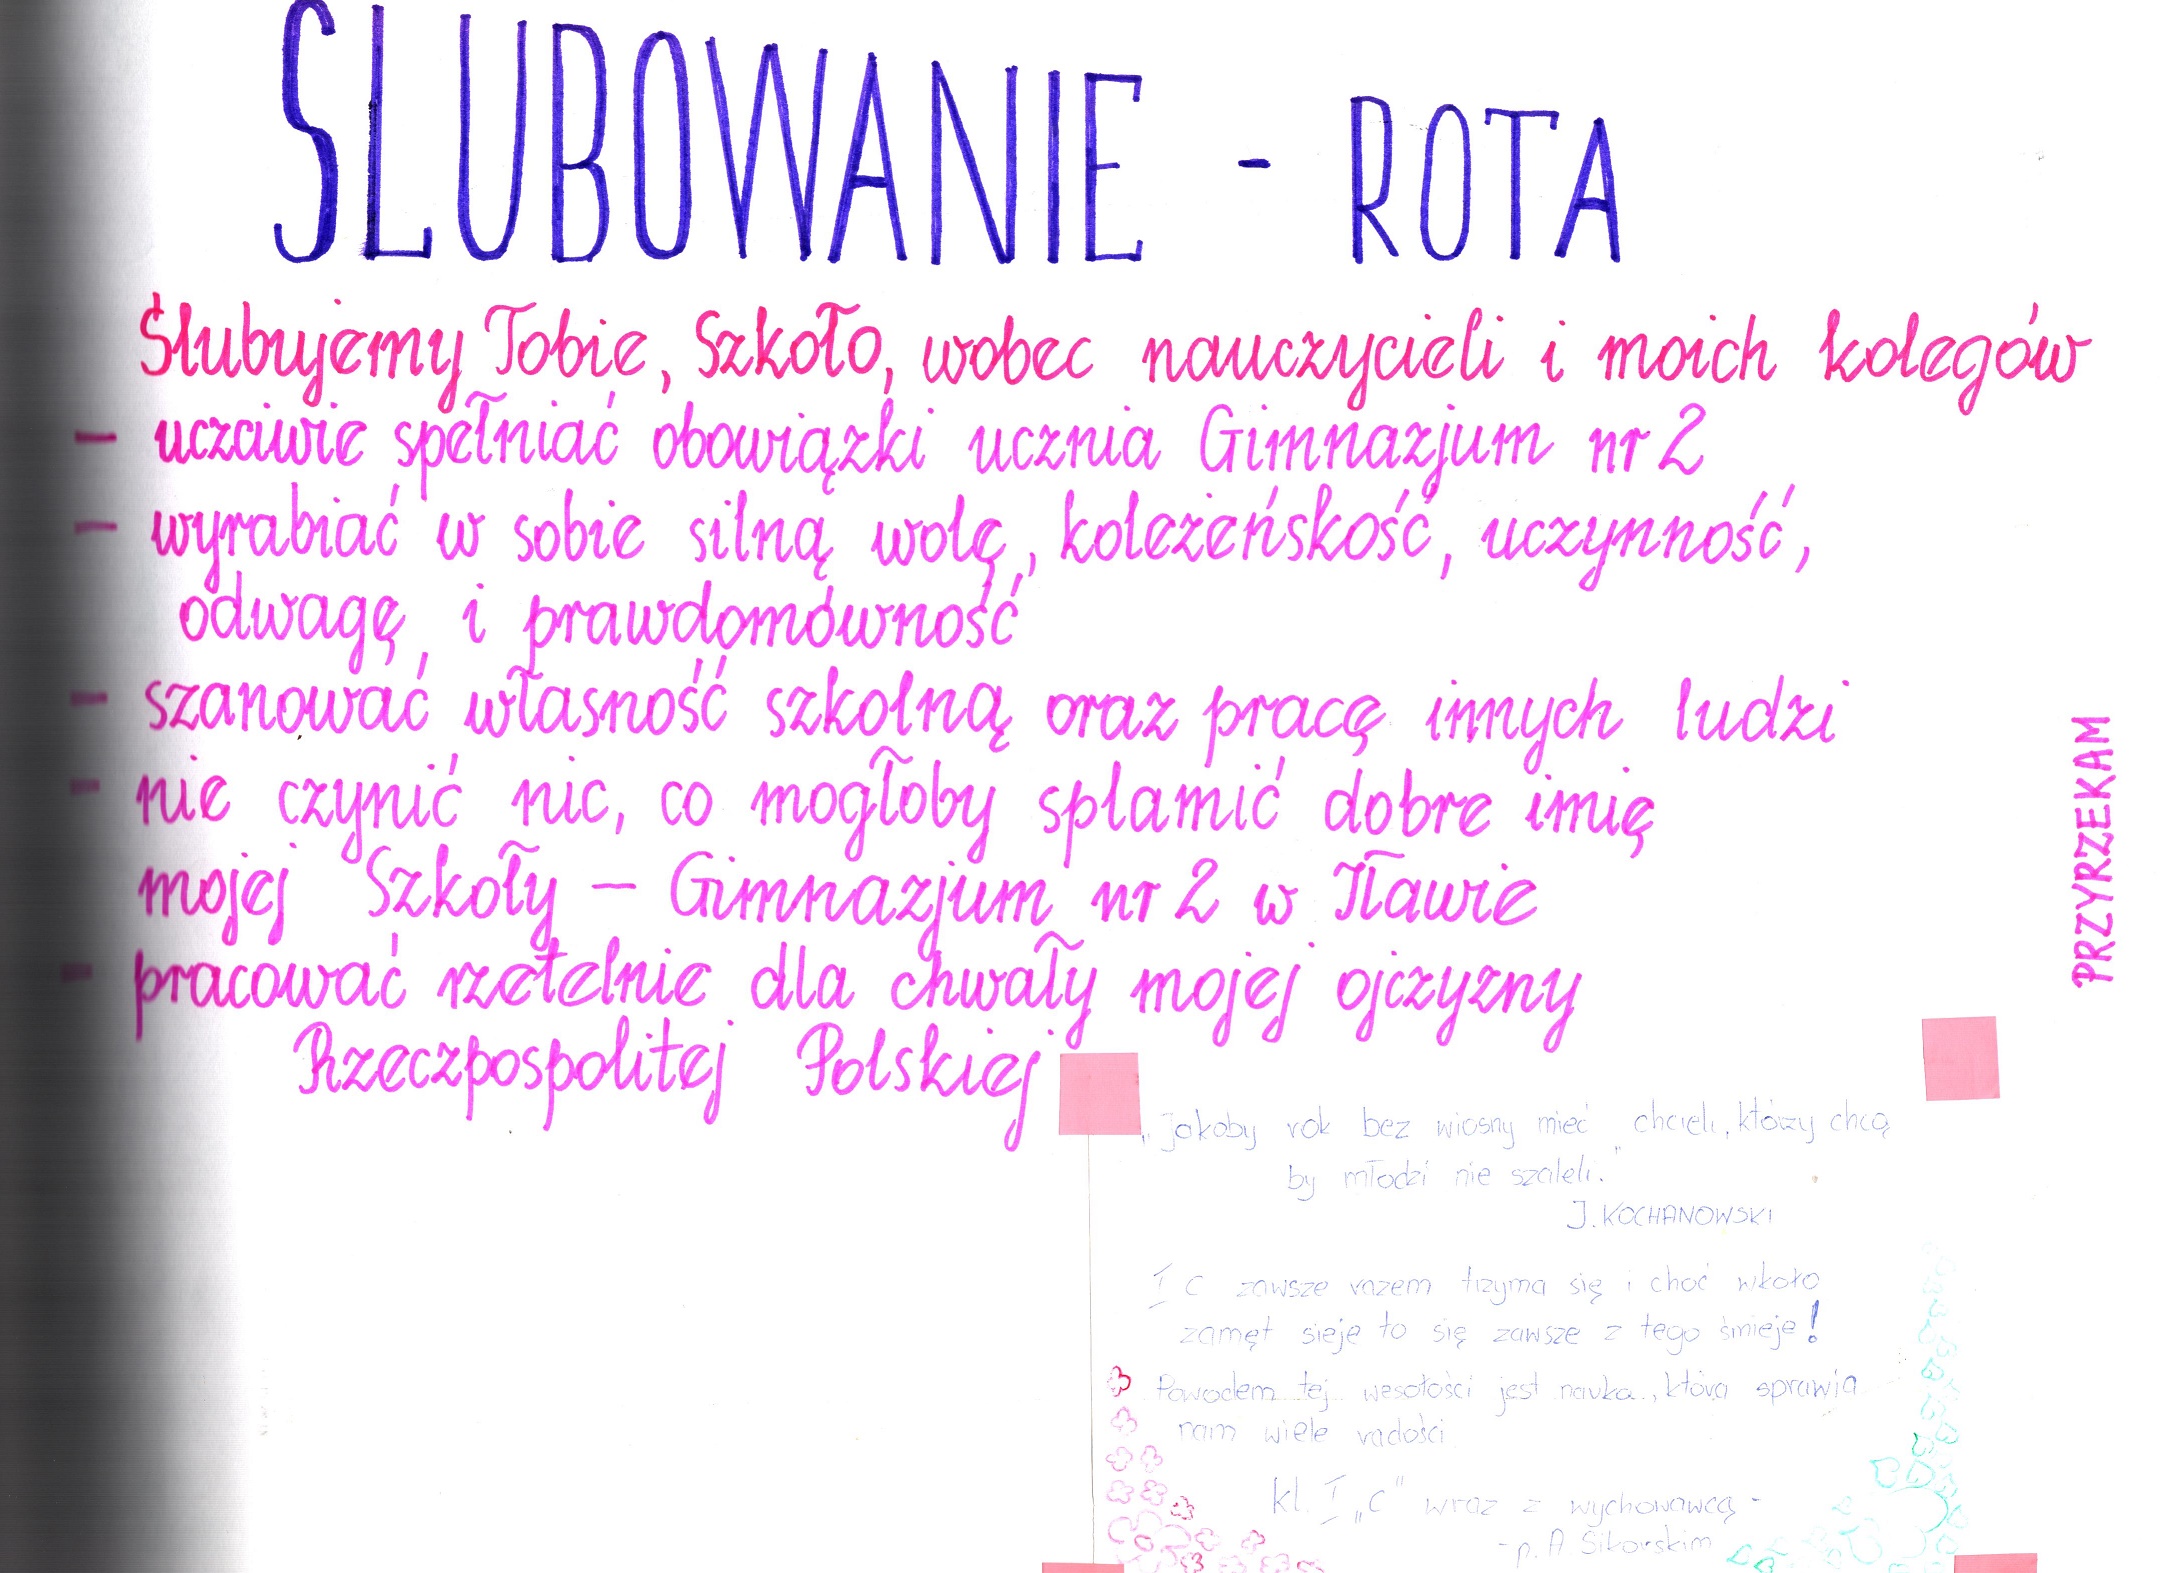 ŚLUBOWANIE - ROTA
Ślubujemy Tobie, Szkoło, wobec nauczycieli i moich kolegów
- uczciwie spełniać obowiązki ucznia Gimnazjum nr 2
- wyrabiać w sobie silną wolę, koleżeńskość, uczynność,
odwagę, i prawdomówność
- szanować własność szkolną oraz pracę innych ludzi
- nie czynić nic, co mogłoby splamić dobre imię
mojej Szkoły – Gimnazjum nr 2 w Iławie
- pracować rzetelnie dla chwały mojej ojczyzny
Rzeczpospolitej Polskiej
PRZYRZEKAM
„Jakoby rok bez wiosny mieć chcieli, którzy chcą
by młodzi nie szaleli."
J. KOCHANOWSKI
I c zawsze razem trzyma się i choć wkoło
zamęt sieje to się zawsze z tego śmieje!
Powodem tej wesołości jest nauka, która sprawia
nam wiele radości
kl. I „c" wraz z wychowawcą -
- p. A. Sikorskim